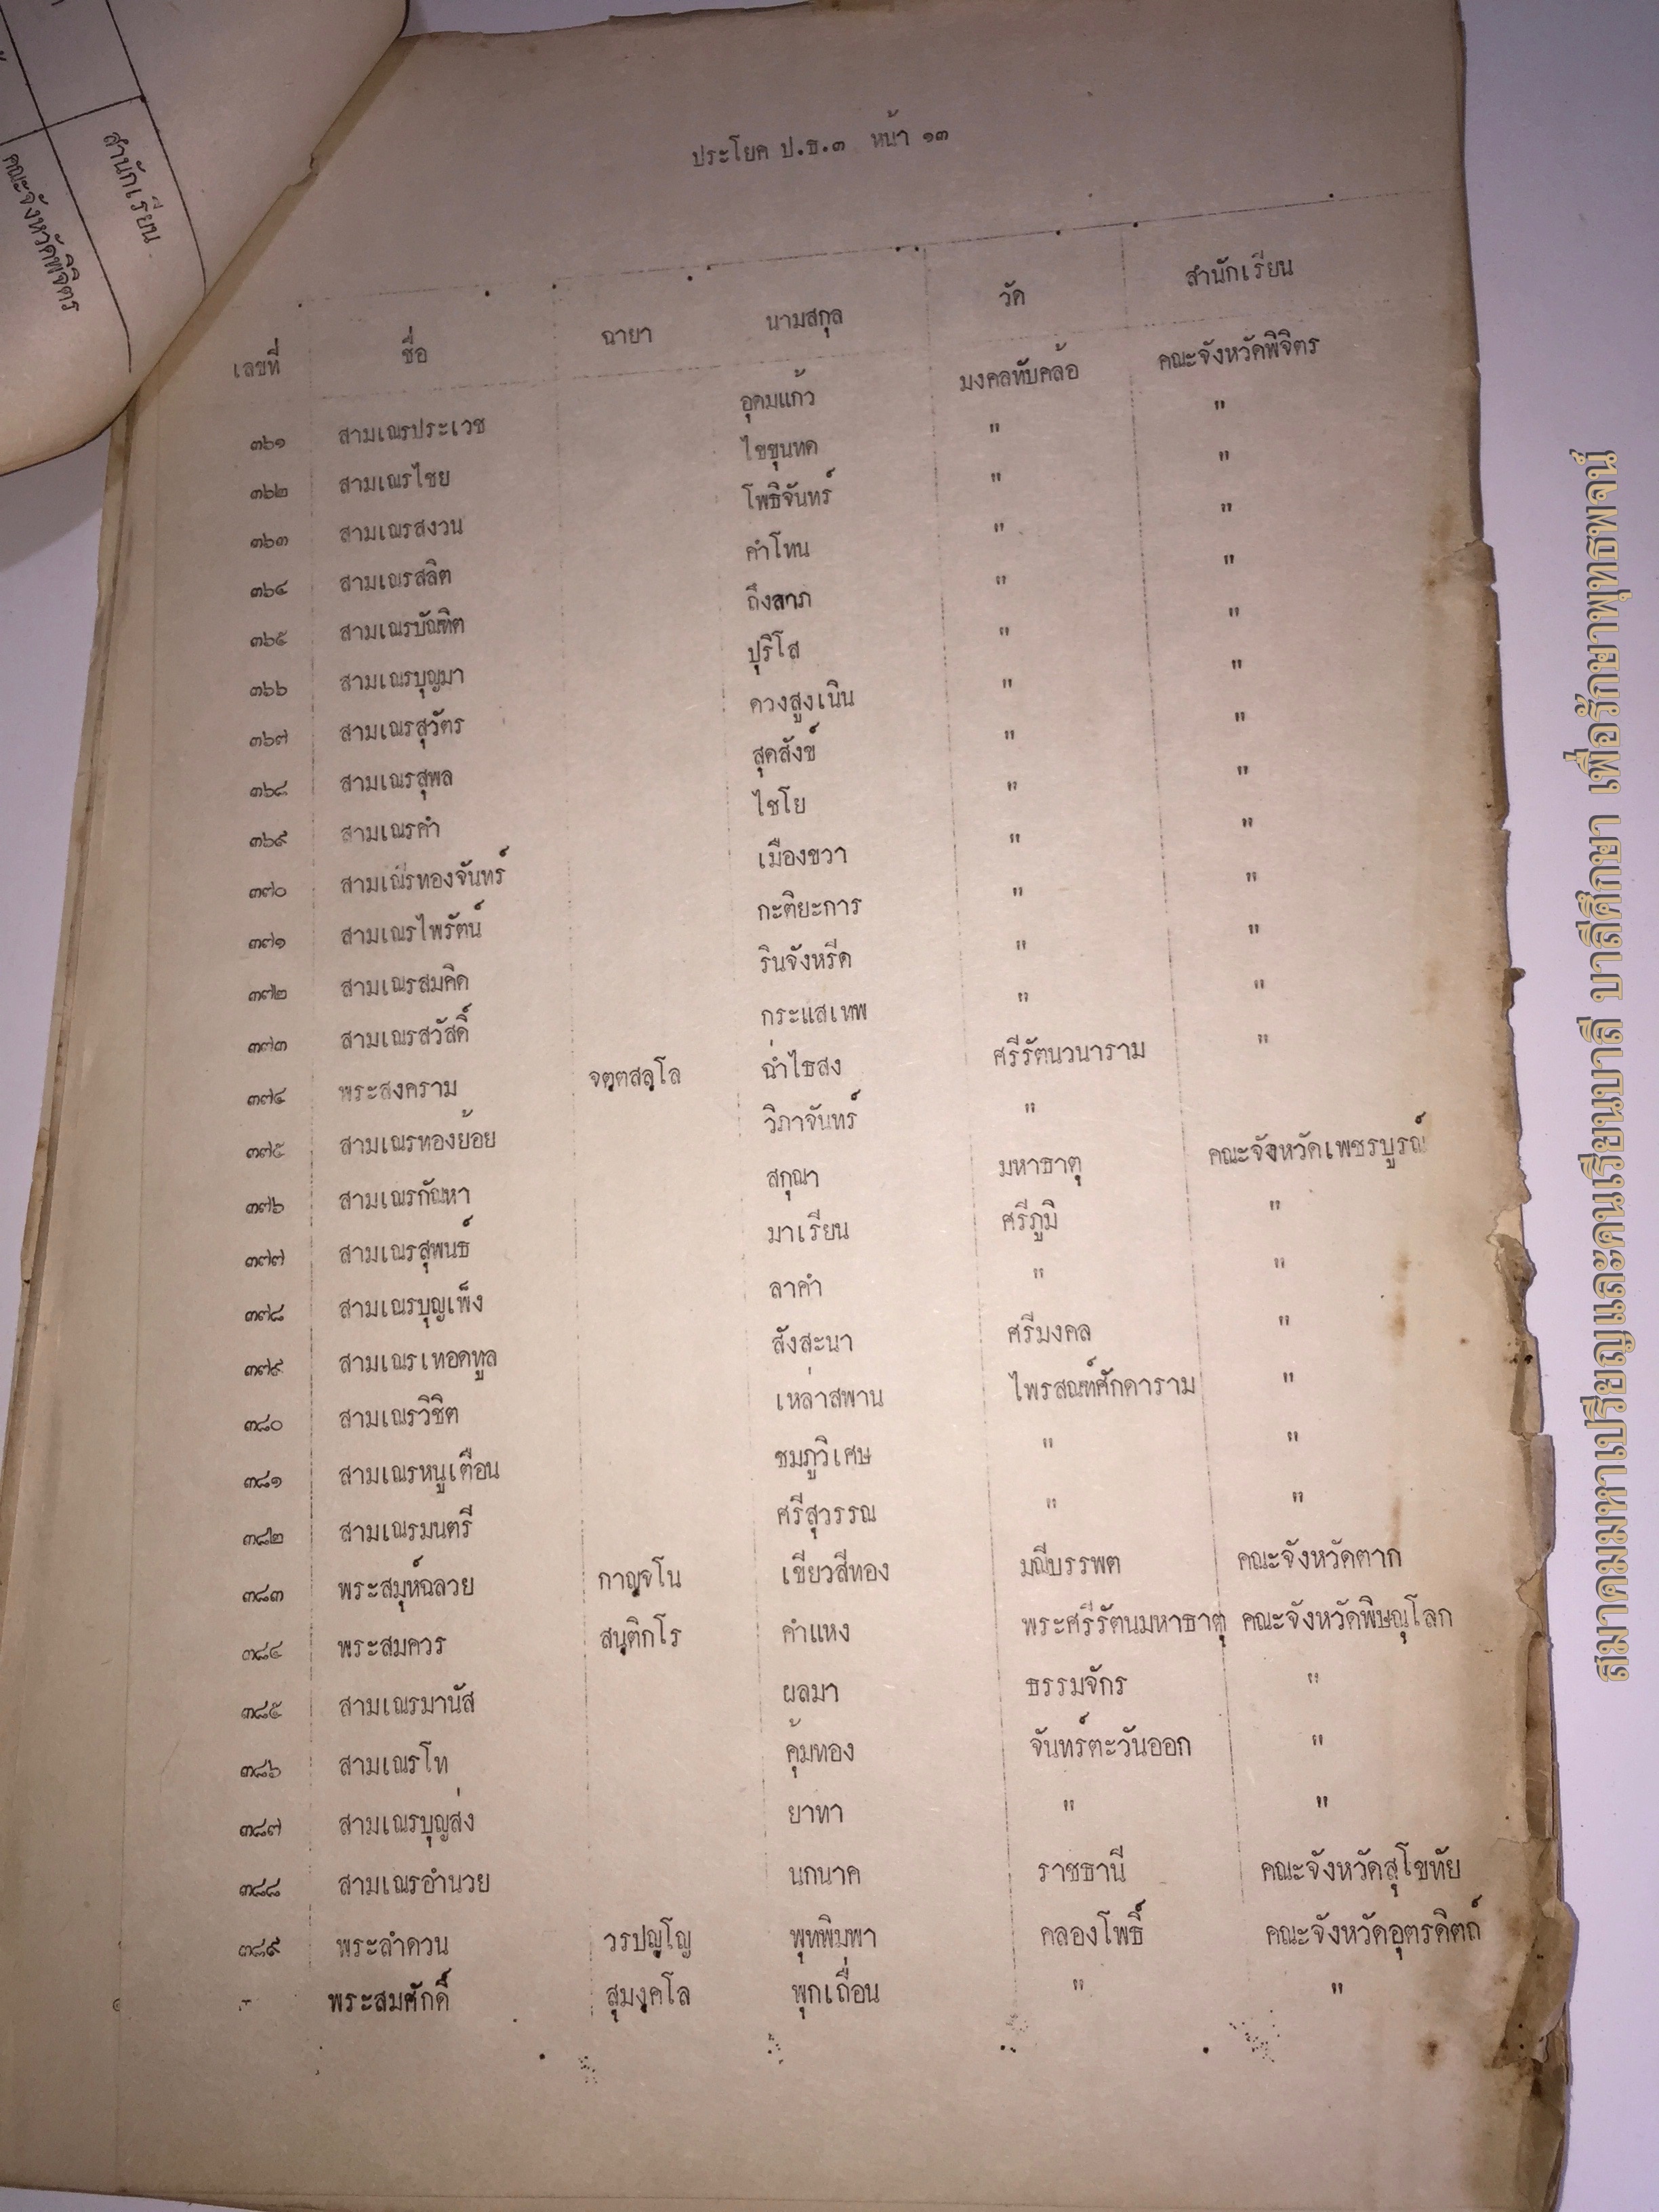 สำนักเรียน
คณะจังหวัดพิจิตร
ประโยค ป.ธ.๓ หน้า ๑๓
เลขที่ ชื่อ ฉายา นามสกุล วัด สำนักเรียน
๓๖๑ สามเณรประเวช อุดมแก้ว มงคลทับคล้อ คณะจังหวัดพิจิตร
๓๖๒ สามเณรไชย ไขขุนทด " "
๓๖๓ สามเณรสงวน โพธิจันทร์ " "
๓๖๔ สามเณรสลิต คำโทน " "
๓๖๕ สามเณรบัณฑิต ถึงลาภ " "
๓๖๖ สามเณรบุญมา ปุริโส " "
๓๖๗ สามเณรสุวัตร ดวงสูงเนิน " "
๓๖๘ สามเณรสุพล สุดสังข์ " "
๓๖๙ สามเณรคำ ไชโย " "
๓๗๐ สามเณรทองจันทร์ เมืองขวา " "
๓๗๑ สามเณรไพรัตน์ กะติยะการ " "
๓๗๒ สามเณรสมคิด รินจังหรีด " "
๓๗๓ สามเณรสวัสดิ์ กระแสเทพ " "
๓๗๔ พระสงคราม จตฺตสลฺโล ฉ่ำไธสง ศรีรัตนวนาราม "
๓๗๕ สามเณรทองย้อย วิภาจันทร์ "
๓๗๖ สามเณรกัณหา สกุณา มหาธาตุ คณะจังหวัดเพชรบูรณ์
๓๗๗ สามเณรสุพนธ์ มาเรียน ศรีภูมิ "
๓๗๘ สามเณรบุญเพ็ง ลาคำ " "
๓๗๙ สามเณรเทอดทูล สังสะนา ศรีมงคล "
๓๘๐ สามเณรวิชิต เหล่าสพาน ไพรสณฑ์ศักดาราม "
๓๘๑ สามเณรหนูเตือน ชมภูวิเศษ " "
๓๘๒ สามเณรมนตรี ศรีสุวรรณ " "
๓๘๓ พระสมุห์ฉลวย กาญฺจโน เขียวสีทอง มณีบรรพต คณะจังหวัดตาก
๓๘๔ พระสมควร สนฺติกโร คำแหง พระศรีรัตนมหาธาตุ คณะจังหวัดพิษณุโลก
๓๘๕ สามเณรมานัส ผลมา ธรรมจักร "
๓๘๖ สามเณรโท คุ้มทอง จันทร์ตะวันออก "
๓๘๗ สามเณรบุญส่ง ยาทา " "
๓๘๘ สามเณรอำนวย นกนาค ราชธานี คณะจังหวัดสุโขทัย
๓๘๙ พระลำดวน วรปญฺโญ พุทพิมพา คลองโพธิ์ คณะจังหวัดอุตรดิตถ์
- พระสมศักดิ์ สุมงฺคโล พุกเถื่อน " "
สมาคมมหาเปรียญและคนเรียนบาลี บาลีศึกษา เพื่อรักษาพุทธพจน์